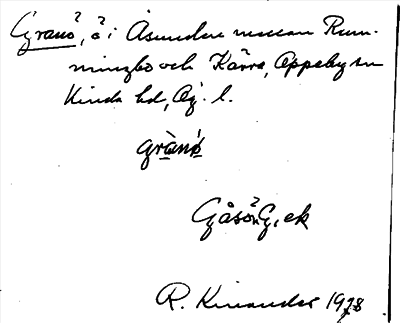 Granö, ö i Åsunden mellan Rum-
mingbo och Kärra, Oppeby sn
Kinda hd, Ög. l.
grànö
Gåsön G, ek
R. Kinander 1928